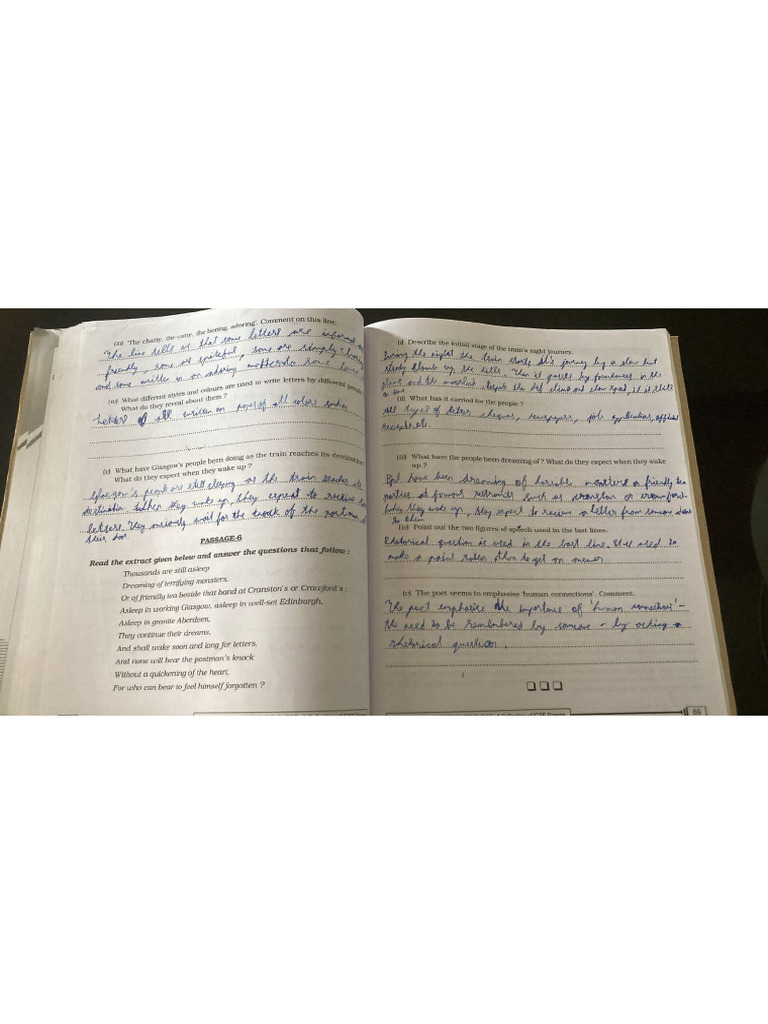 (iii) 'The chatty, the catty, the boring, adoring'. Comment on this line.
The line tells us that some letters are informal
friendly, some are spiteful, some are simply
and some written in an adoring
(iv) What different styles and colours are used to write letters by different people
What do they reveal about them ?
letters all written on paper of all colors
(v) What have Glasgow's people been doing as the train reaches its destination
What do they expect when they wake up ?
Glasgow's people are still sleeping as the train reaches its
destination when they wake up, they expect to receive
letters. They anxiously wait for the knock of the postman
their door
PASSAGE-6
Read the extract given below and answer the questions that follow :
Thousands are still asleep
Dreaming of terrifying monsters,
Or of friendly tea beside that band at Cranston's or Crawford's :
Asleep in working Glasgow, asleep in well-set Edinburgh,
Asleep in granite Aberdeen,
They continue their dreams,
And shall wake soon and long for letters,
And none will hear the postman's knock
Without a quickening of the heart,
For who can bear to feel himself forgotten ?
(i) Describe the initial stage of the train's night journey.
During the night the train starts it's journey by a slow but
steady climb up the hills. Then it passes by in the
plains and the moorland. despite the climb and slow speed, it is
on time
(ii) What has it carried for the people ?
All types of letter cheques, newspapers, job application, official
(iii) What have the people been dreaming of ? What do they expect when they wake
up ?
Ppl have been dreaming of horrible monsters or friendly tea
parties at famous such as cranston or crawford
when they wake up, they expect to receive a letter from someone
to them
(iv) Point out the two figures of speech used in the last lines.
Rhetorical question is used in the last line. It is used to
make a point rather than to get an answer
(v) The poet seems to emphasise 'human connections'. Comment.
The poet emphasise the importance of 'human connections' -
the need to be remembered by someone - by asking a
rhetorical question.
69